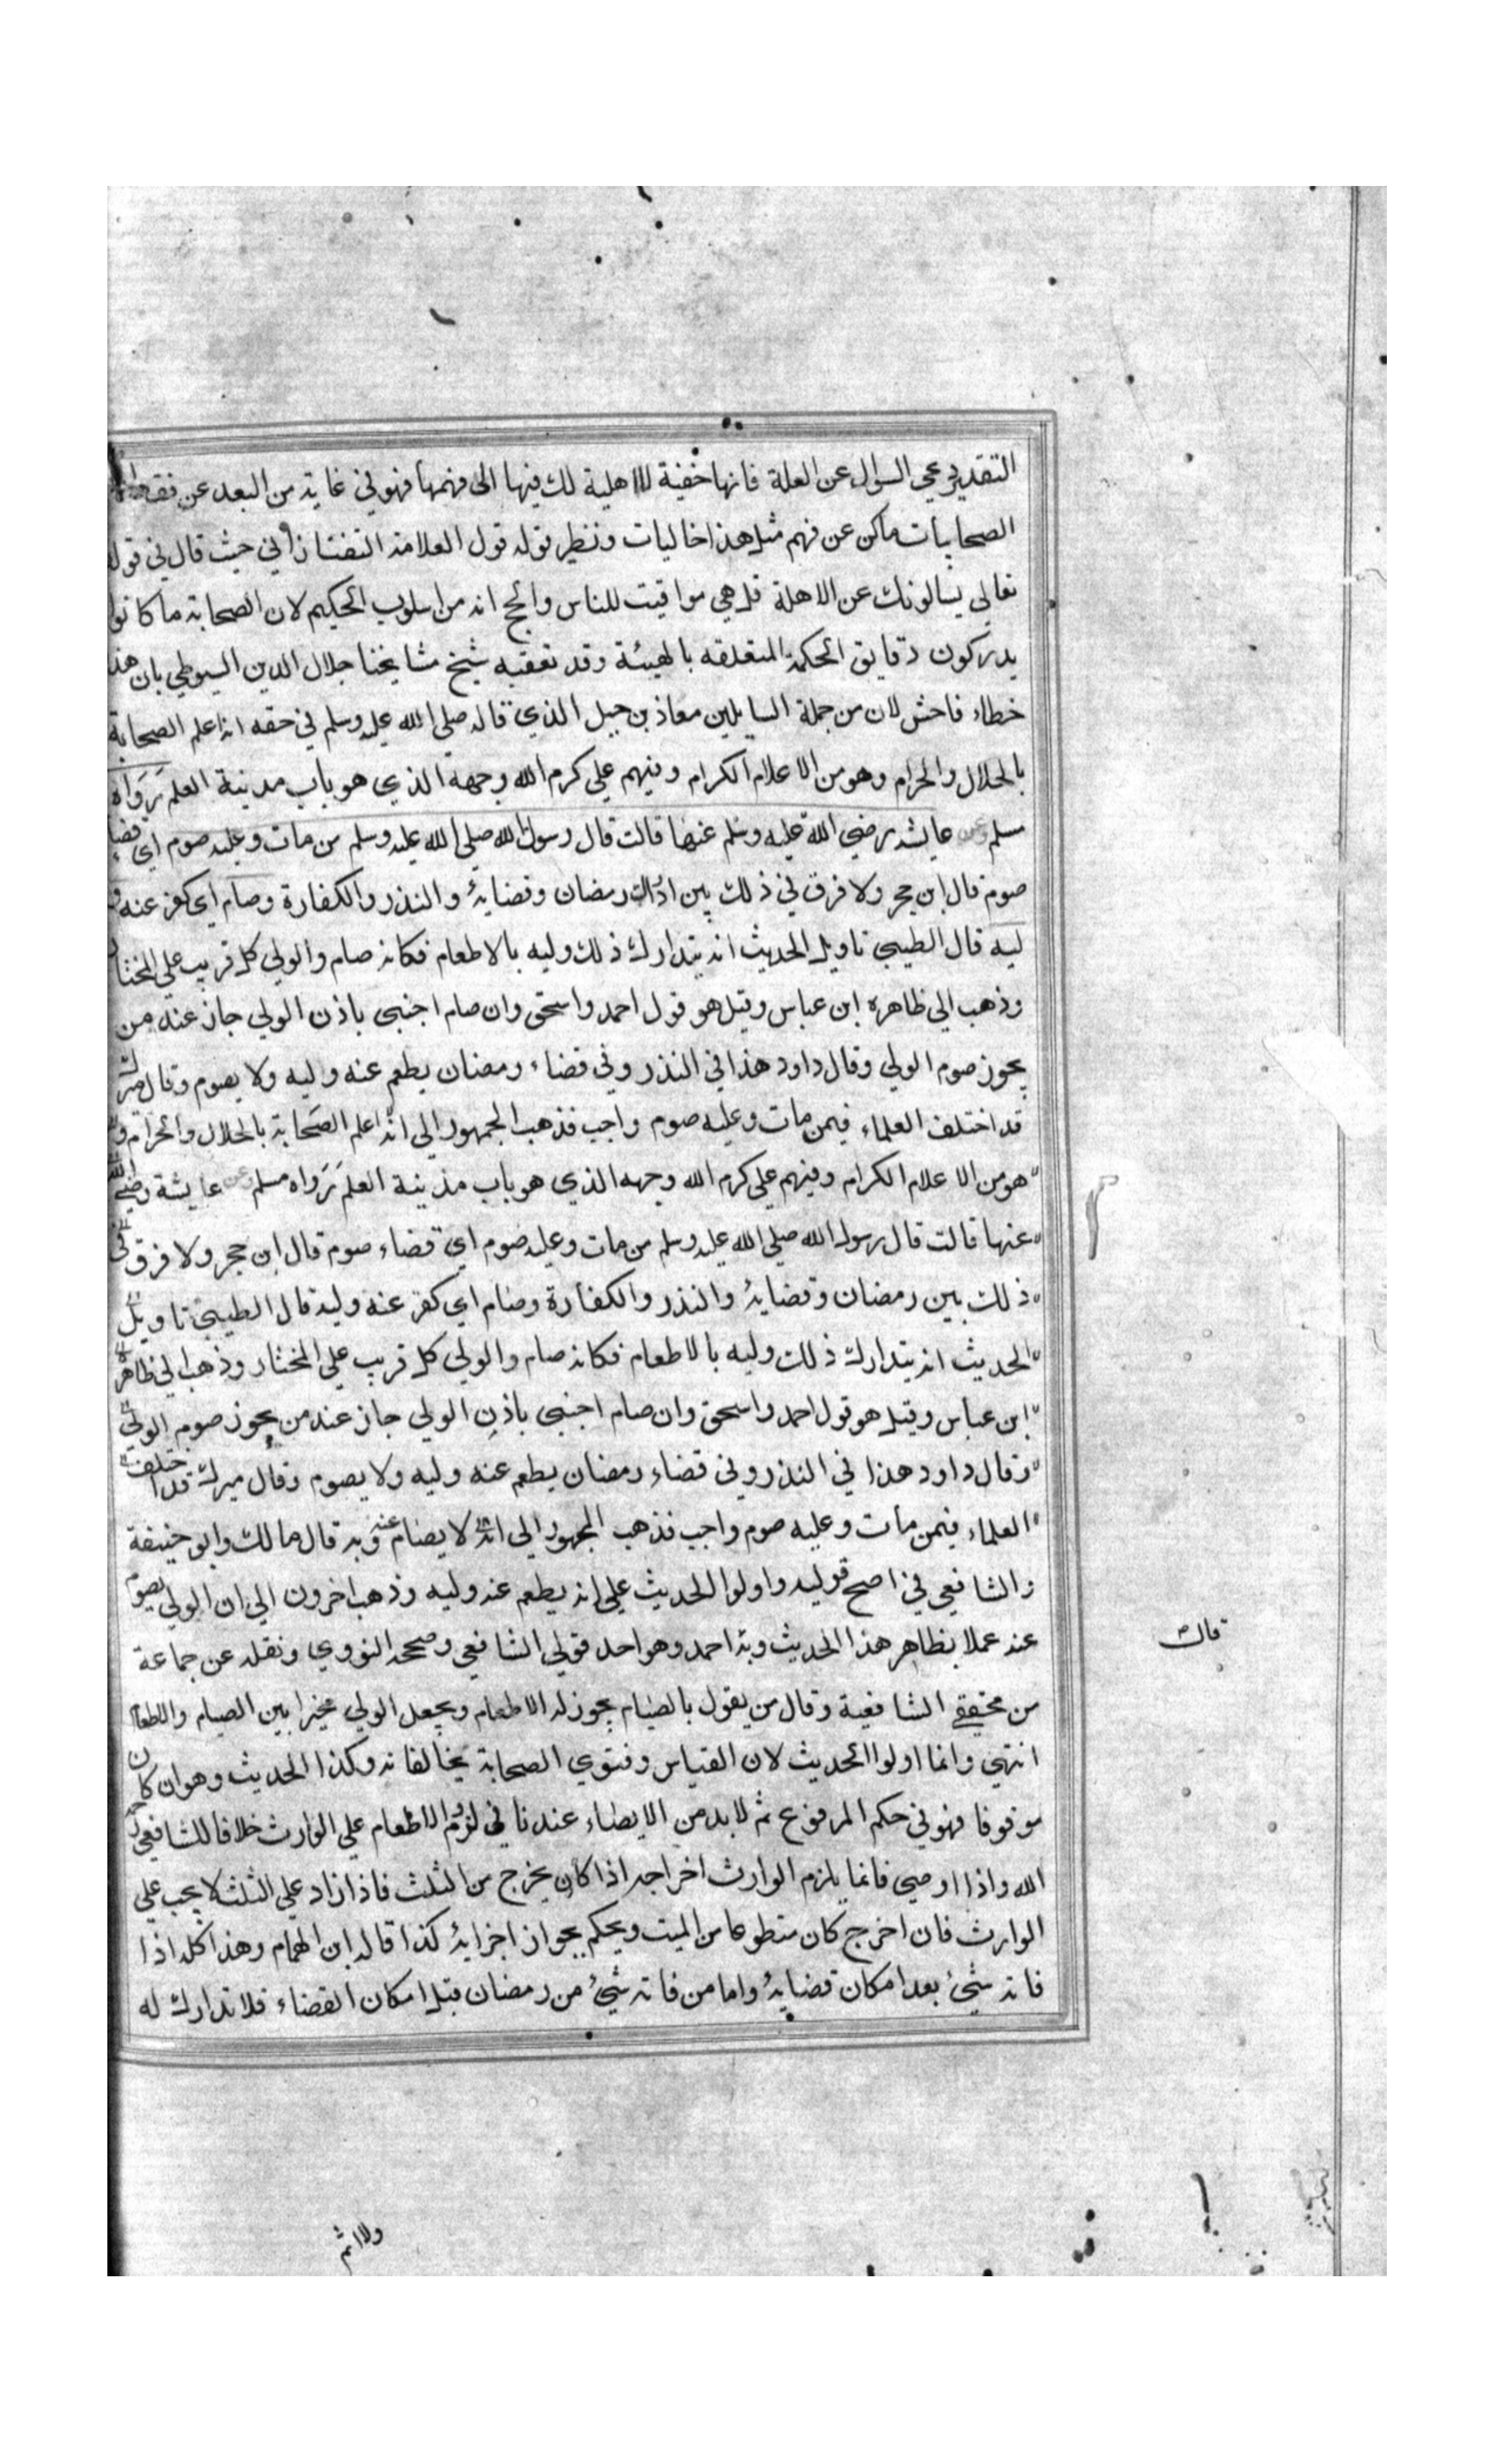 التقدير عي السوال عن العلة فانها خفية لا اهلية لك فيها الى فهمها فهو في غاية من البعد عن فقه
الصحابيات ماكن عن فهم مثل هذا خاليات ونظير قوله قول العلامة التفتازاني حيث قال في قوله
تعالي يسالونك عن الاهلة قل هي مواقيت للناس والحج انه من اسلوب الحكيم لان الصحابة ما كانوا
يدركون دقايق الحكمة المتعلقه بالهيئة وقد تعقبه شيخ مشايخنا جلال الدين السيوطي بان هذا
خطاء فاحش لان من جملة السايلين معاذ بن جبل الذي قاله صلى الله عليه وسلم في حقه انه اعلم الصحابة
بالحلال والحرام وهو من الاعلام الكرام وفيهم علي كرم الله وجهه الذي هو باب مدينة العلم رواه
مسلم وعن عايشه رضي الله عليه وسلم عنها قالت قال رسول الله صلي الله عليه وسلم من مات وعليه صوم اي قضاء
صوم قال ابن حجر ولا فرق في ذلك بين رمضان وقضايه والنذر والكفارة وصام اي كفر عنه و
ليه قال الطيبي تاويل الحديث انه يتدارك ذلك وليه بالاطعام فكانه صام والولي كل قريب علي المختار
وذهب الي ظاهره ابن عباس وقيل هو قول احمد واسحق وان صام اجنبي باذن الولي جاز عند من
يجوز صوم الولي وقال داود هذا في النذر وفي قضاء رمضان يطعم عنه وليه ولا يصوم وقال ميرك
قد اختلف العلماء فيمن مات وعليه صوم واجب فذهب الجمهور الي انه اعلم الصحابة بالحلال والحرام و
هو من الاعلام الكرام وفيهم علي كرم الله وجهه الذي هو باب مدينة العلم رواه مسلم وعن عايشة رضي الله
عنها قالت قال رسول الله صلي الله عليه وسلم من مات وعليه صوم اي قضاء صوم قال ابن حجر ولا فرق في
ذلك بين رمضان وقضايه والنذر والكفارة وصام اي كفر عنه وليه قال الطيبي تاويل
الحديث انه يتدارك ذلك وليه بالاطعام فكانه صام والولي كل قريب علي المختار وذهب الي ظاهره
ابن عباس وقيل هو قول احمد واسحق وان صام اجنبي باذن الولي جاز عند من يجوز صوم الولي
وقال داود هذا في النذر وفي قضاء رمضان يطعم عنه وليه ولا يصوم وقال ميرك قد اختلف
العلماء فيمن مات وعليه صوم واجب فذهب الجمهور الي انه لا يصام عنه وبه قال مالك وابو حنيفة
والشافعي في اصح قوليه واولوا الحديث علي انه يطعم عنه وليه وذهب اخرون الي ان الولي يصوم
عنه عملا بظاهر هذا الحديث وبه احمد وهو احد قولي الشافعي وصححه النووي ونقله عن جماعة
قال
من محققي الشافعية وقال من يقول بالصيام يجوز له الاطعام ويجعل الولي مخيرا بين الصيام والاطعام
انتهي وانما اولوا الحديث لان القياس وفتوي الصحابة يخالفانه وكذا الحديث وهو ان كان
موقوفا فهو في حكم المرفوع ثم لا بد من الايصاء عندنا في لزوم الاطعام علي الوارث خلافا للشافعي رحمه
الله واذا اوصي فانما يلزم الوارث اخراجه اذا كان يخرج من الثلث فاذا زاد علي الثلث لا يجب علي
الوارث فان اخرج كان متطوعا من الميت ويحكم بجواز اجزايه كذا قاله ابن الهمام وهذا كله اذا
فاته شيئ بعد امكان قضايه واما من فاته شيئ من رمضان قبل امكان القضاء فلا تدارك له
ولا اثم